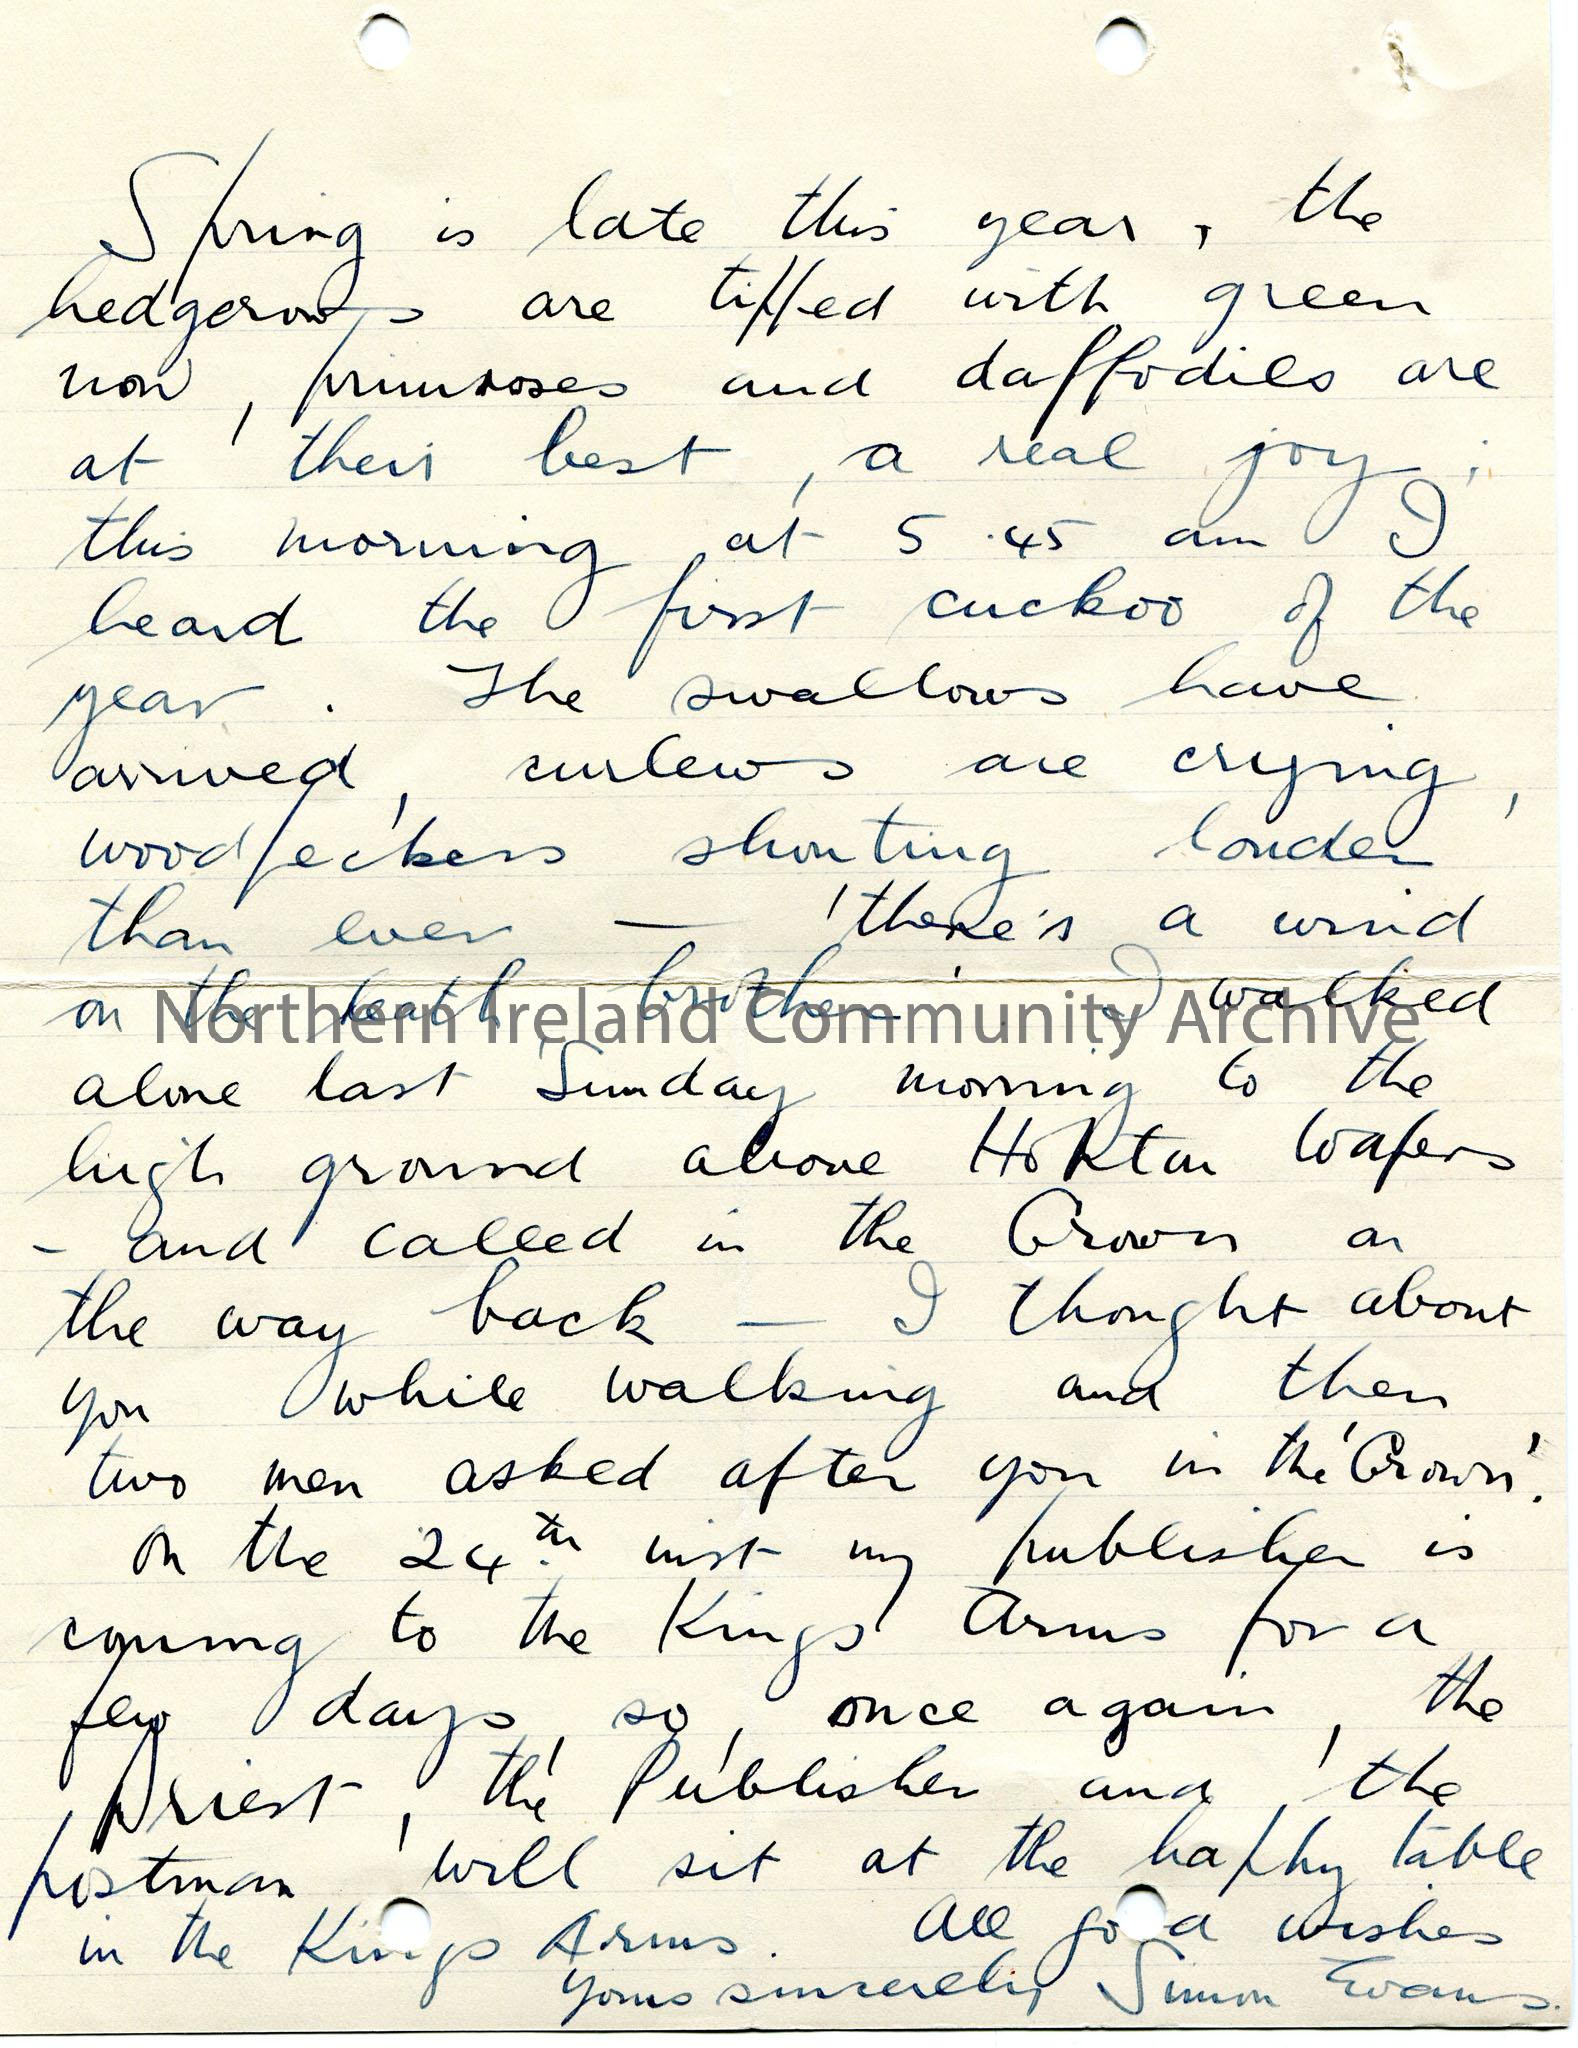 Spring is late this year, the
hedgerows are tipped with green
now, primroses and daffodils are
at their best, a real joy;
this morning at 5.45 am I
heard the first cuckoo of the
year. The swallows have
arrived, curlews are crying,
woodpeckers shouting louder
than ever — 'there's a wind
on the heath brother'. I walked
Northern Ireland Community Archive
alone last Sunday morning to the
high ground above Hopton Wafers
- and called in the Crown on
the way back — I thought about
you while walking and then
two men asked after you in the 'Crown'.
On the 24th inst my publisher is
coming to the Kings Arms for a
few days, so, once again, the
Priest, the Publisher and the
postman will sit at the happy table
in the Kings Arms. All good wishes
Yours sincerely, Simon Evans.